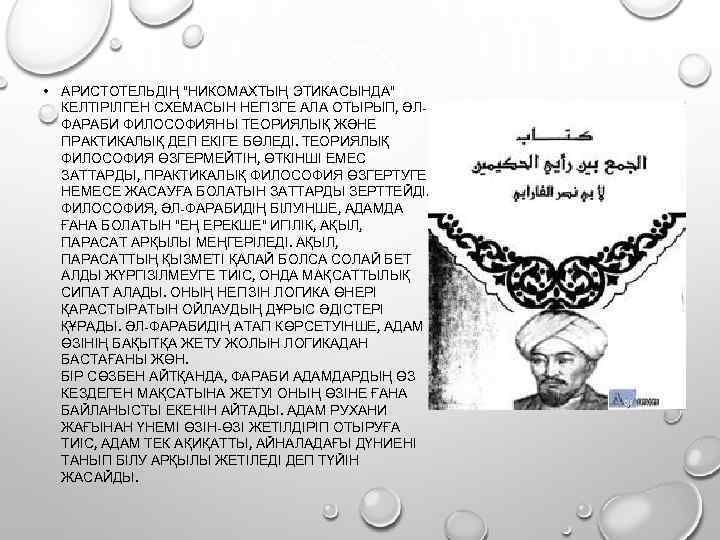 • АРИСТОТЕЛЬДІҢ "НИКОМАХТЫҢ ЭТИКАСЫНДА"
КЕЛТІРІЛГЕН СХЕМАСЫН НЕГІЗГЕ АЛА ОТЫРЫП, ӘЛ-
ФАРАБИ ФИЛОСОФИЯНЫ ТЕОРИЯЛЫҚ ЖӘНЕ
ПРАКТИКАЛЫҚ ДЕП ЕКІГЕ БӨЛЕДІ. ТЕОРИЯЛЫҚ
ФИЛОСОФИЯ ӨЗГЕРМЕЙТІН, ӨТКІНШІ ЕМЕС
ЗАТТАРДЫ, ПРАКТИКАЛЫҚ ФИЛОСОФИЯ ӨЗГЕРТУГЕ
НЕМЕСЕ ЖАСАУҒА БОЛАТЫН ЗАТТАРДЫ ЗЕРТТЕЙДІ.
ФИЛОСОФИЯ, ӘЛ-ФАРАБИДІҢ БІЛУІНШЕ, АДАМДА
ҒАНА БОЛАТЫН "ЕҢ ЕРЕКШЕ" ИГІЛІК, АҚЫЛ,
ПАРАСАТ АРҚЫЛЫ МЕҢГЕРІЛЕДІ. АҚЫЛ,
ПАРАСАТТЫҢ ҚЫЗМЕТІ ҚАЛАЙ БОЛСА СОЛАЙ БЕТ
АЛДЫ ЖҮРГІЗІЛМЕУГЕ ТИІС, ОНДА МАҚСАТТЫЛЫҚ
СИПАТ АЛАДЫ. ОНЫҢ НЕГІЗІН ЛОГИКА ӨНЕРІ
ҚАРАСТЫРАТЫН ОЙЛАУДЫҢ ДҰРЫС ӘДІСТЕРІ
ҚҰРАДЫ. ӘЛ-ФАРАБИДІҢ АТАП КӨРСЕТУІНШЕ, АДАМ
ӨЗІНІҢ БАҚЫТҚА ЖЕТУ ЖОЛЫН ЛОГИКАДАН
БАСТАҒАНЫ ЖӨН.
БІР СӨЗБЕН АЙТҚАНДА, ФАРАБИ АДАМДАРДЫҢ ӨЗ
КЕЗДЕГЕН МАҚСАТЫНА ЖЕТУІ ОНЫҢ ӨЗІНЕ ҒАНА
БАЙЛАНЫСТЫ ЕКЕНІН АЙТАДЫ. АДАМ РУХАНИ
ЖАҒЫНАН ҮНЕМІ ӨЗІН-ӨЗІ ЖЕТІЛДІРІП ОТЫРУҒА
ТИІС, АДАМ ТЕК АҚИҚАТТЫ, АЙНАЛАДАҒЫ ДҮНИЕНІ
ТАНЫП БІЛУ АРҚЫЛЫ ЖЕТІЛЕДІ ДЕП ТҮЙІН
ЖАСАЙДЫ.
كتاب
الجمع بين رأيي الحكيمين
لابي نصر الفارابي